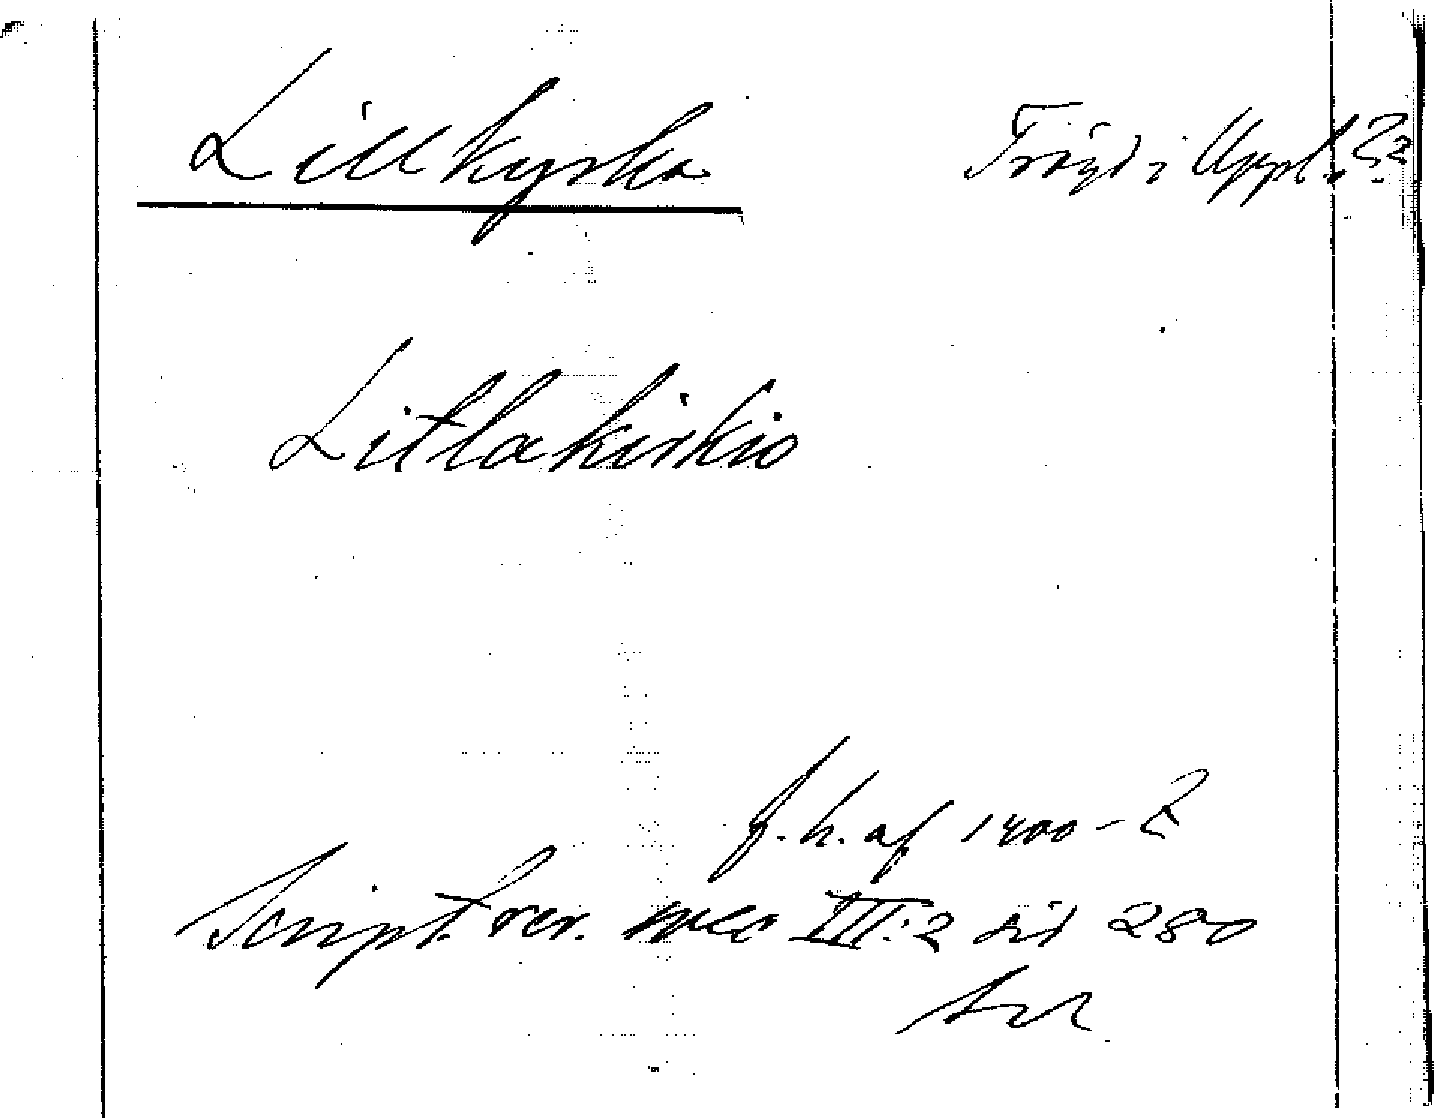 Lillkyrka Trögd i Uppl. ??
Litlakirkio
f. h. af 1400-t
Script. rer. svec III:2 sid 280